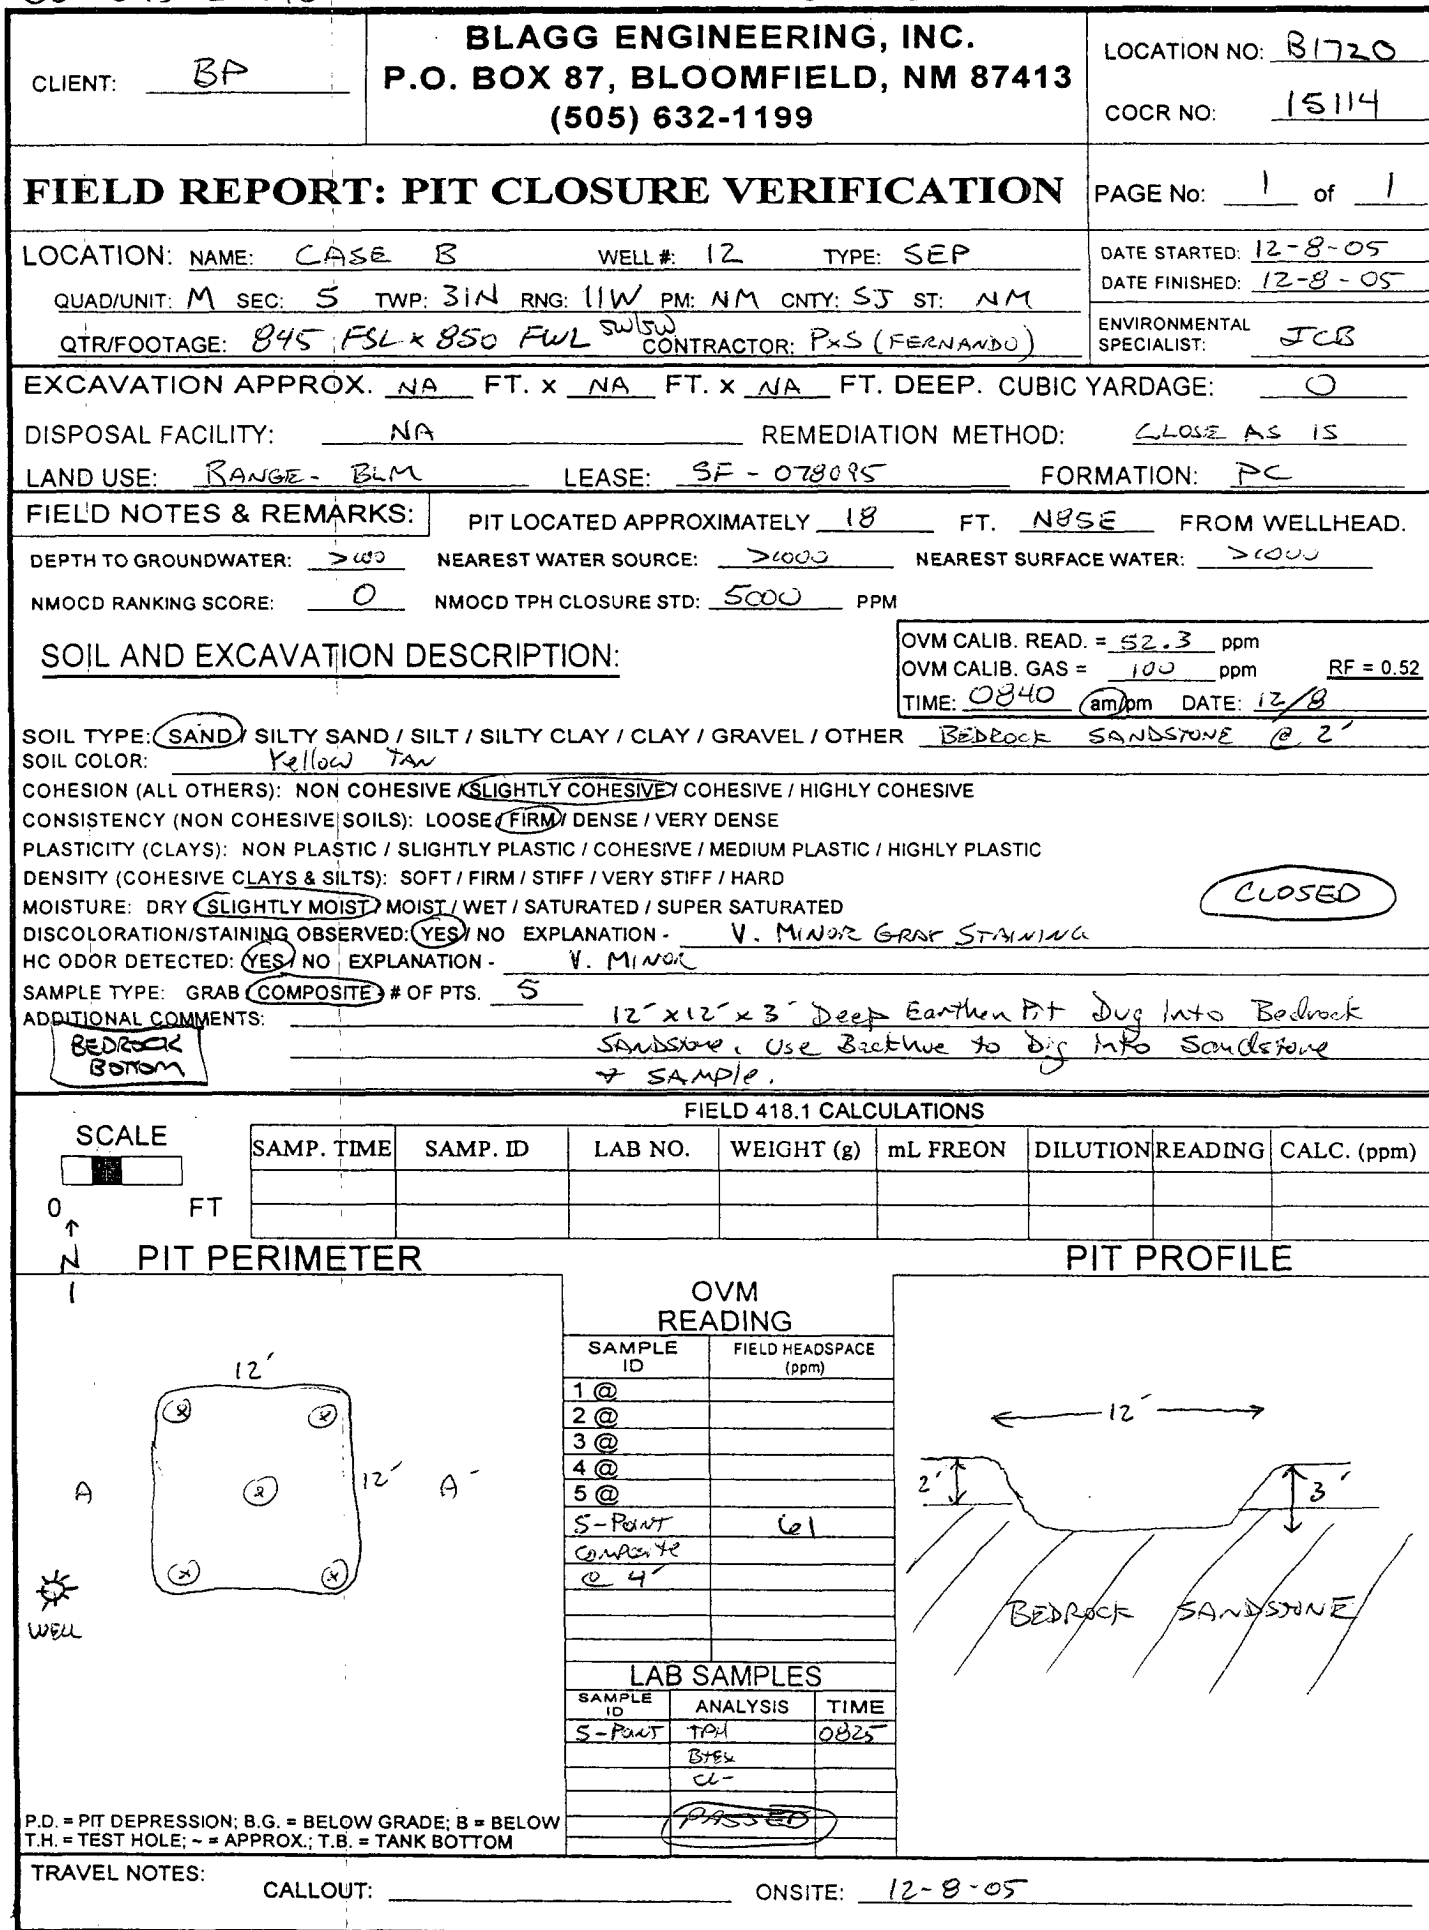 BLAGG ENGINEERING, INC.
P.O. BOX 87, BLOOMFIELD, NM 87413
(505) 632-1199
CLIENT: BP
LOCATION NO: B1720
COCR NO: 15114
FIELD REPORT: PIT CLOSURE VERIFICATION
PAGE No: 1 of 1
LOCATION: NAME: CASE B WELL #: 12 TYPE: SEP
QUAD/UNIT: M SEC: 5 TWP: 31N RNG: 11W PM: NM CNTY: SJ ST: NM
QTR/FOOTAGE: 845 FSL x 850 FWL SW/SW CONTRACTOR: PxS (FERNANDO)
DATE STARTED: 12-8-05
DATE FINISHED: 12-8-05
ENVIRONMENTAL
SPECIALIST: JCB
EXCAVATION APPROX. NA FT. x NA FT. x NA FT. DEEP. CUBIC YARDAGE: 0
DISPOSAL FACILITY: NA REMEDIATION METHOD: CLOSE AS IS
LAND USE: RANGE - BLM LEASE: SF - 078095 FORMATION: PC
FIELD NOTES & REMARKS: PIT LOCATED APPROXIMATELY 18 FT. N85E FROM WELLHEAD.
DEPTH TO GROUNDWATER: >100 NEAREST WATER SOURCE: >1000 NEAREST SURFACE WATER: >1000
NMOCD RANKING SCORE: 0 NMOCD TPH CLOSURE STD: 5000 PPM
SOIL AND EXCAVATION DESCRIPTION:
OVM CALIB. READ. = 52.3 ppm
OVM CALIB. GAS = 100 ppm RF = 0.52
TIME: 0840 am/pm DATE: 12/8
SOIL TYPE: SAND / SILTY SAND / SILT / SILTY CLAY / CLAY / GRAVEL / OTHER BEDROCK SANDSTONE @ 2'
SOIL COLOR: Yellow TAN
COHESION (ALL OTHERS): NON COHESIVE / SLIGHTLY COHESIVE / COHESIVE / HIGHLY COHESIVE
CONSISTENCY (NON COHESIVE SOILS): LOOSE / FIRM / DENSE / VERY DENSE
PLASTICITY (CLAYS): NON PLASTIC / SLIGHTLY PLASTIC / COHESIVE / MEDIUM PLASTIC / HIGHLY PLASTIC
DENSITY (COHESIVE CLAYS & SILTS): SOFT / FIRM / STIFF / VERY STIFF / HARD
MOISTURE: DRY / SLIGHTLY MOIST / MOIST / WET / SATURATED / SUPER SATURATED
CLOSED
DISCOLORATION/STAINING OBSERVED: YES / NO EXPLANATION - V. MINOR GRAY STAINING
HC ODOR DETECTED: YES / NO EXPLANATION - V. MINOR
SAMPLE TYPE: GRAB / COMPOSITE # OF PTS. 5
ADDITIONAL COMMENTS: 12' x 12' x 3' Deep Earthen Pit Dug Into Bedrock
SANDSTONE. Use Backhoe to Dig into Sandstone
+ SAMPLE.
BEDROCK
BOTTOM
FIELD 418.1 CALCULATIONS
SCALE
0 FT
SAMP. TIME SAMP. ID LAB NO. WEIGHT (g) mL FREON DILUTION READING CALC. (ppm)
N
PIT PERIMETER
PIT PROFILE
OVM
READING
SAMPLE ID FIELD HEADSPACE (ppm)
1 @
2 @
3 @
4 @
5 @
5-Point 61
composite
@ 4'
12'
12'
A A'
WELL
12'
2' 3'
BEDROCK SANDSTONE
LAB SAMPLES
SAMPLE ID ANALYSIS TIME
5-Point TPH 0825
BTEX
Cl-
PASSED
P.D. = PIT DEPRESSION; B.G. = BELOW GRADE; B = BELOW
T.H. = TEST HOLE; ~ = APPROX.; T.B. = TANK BOTTOM
TRAVEL NOTES:
CALLOUT: ONSITE: 12-8-05